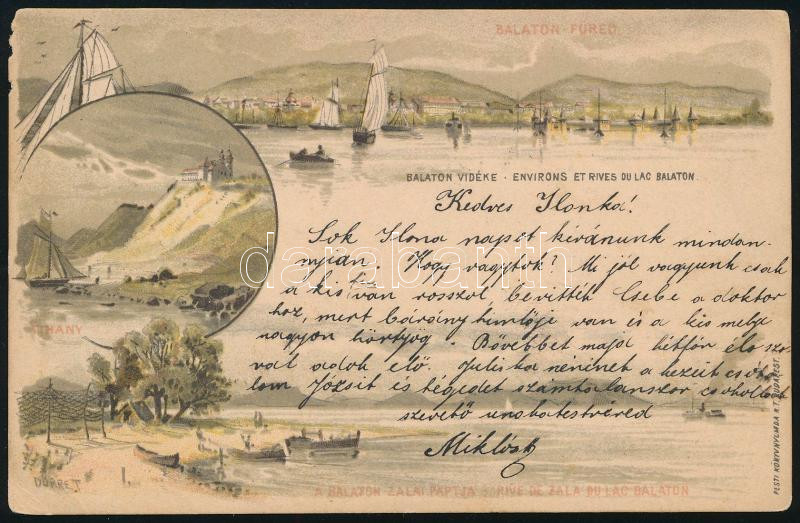 BALATON-FÜRED
BALATON VIDÉKE · ENVIRONS ET RIVES DU LAC BALATON.
Kedves Ilonka!
Sok Ilona napot kívánunk mindan-
nyian. Hogy vagytok? Mi jól vagyunk csak
a kis van rosszul bevitték Csebe a doktor
hoz, mert bárányhimlője van is a kis melye
nagyon hörtyög. Bővebbet majd hétfőn élőszo-
val adok elő. Juliska néninek a kezeit csóko-
lom Józsit is tégedet számtalanszor csókollak
szerető unokatestvéred
Miklós
TIHANY
DÖRRE T.
A BALATON ZALAI PARTJA · RIVE DE ZALA DU LAC BALATON.
PESTI KÖNYVNYOMDA R.T. BUDAPEST.
darabanth